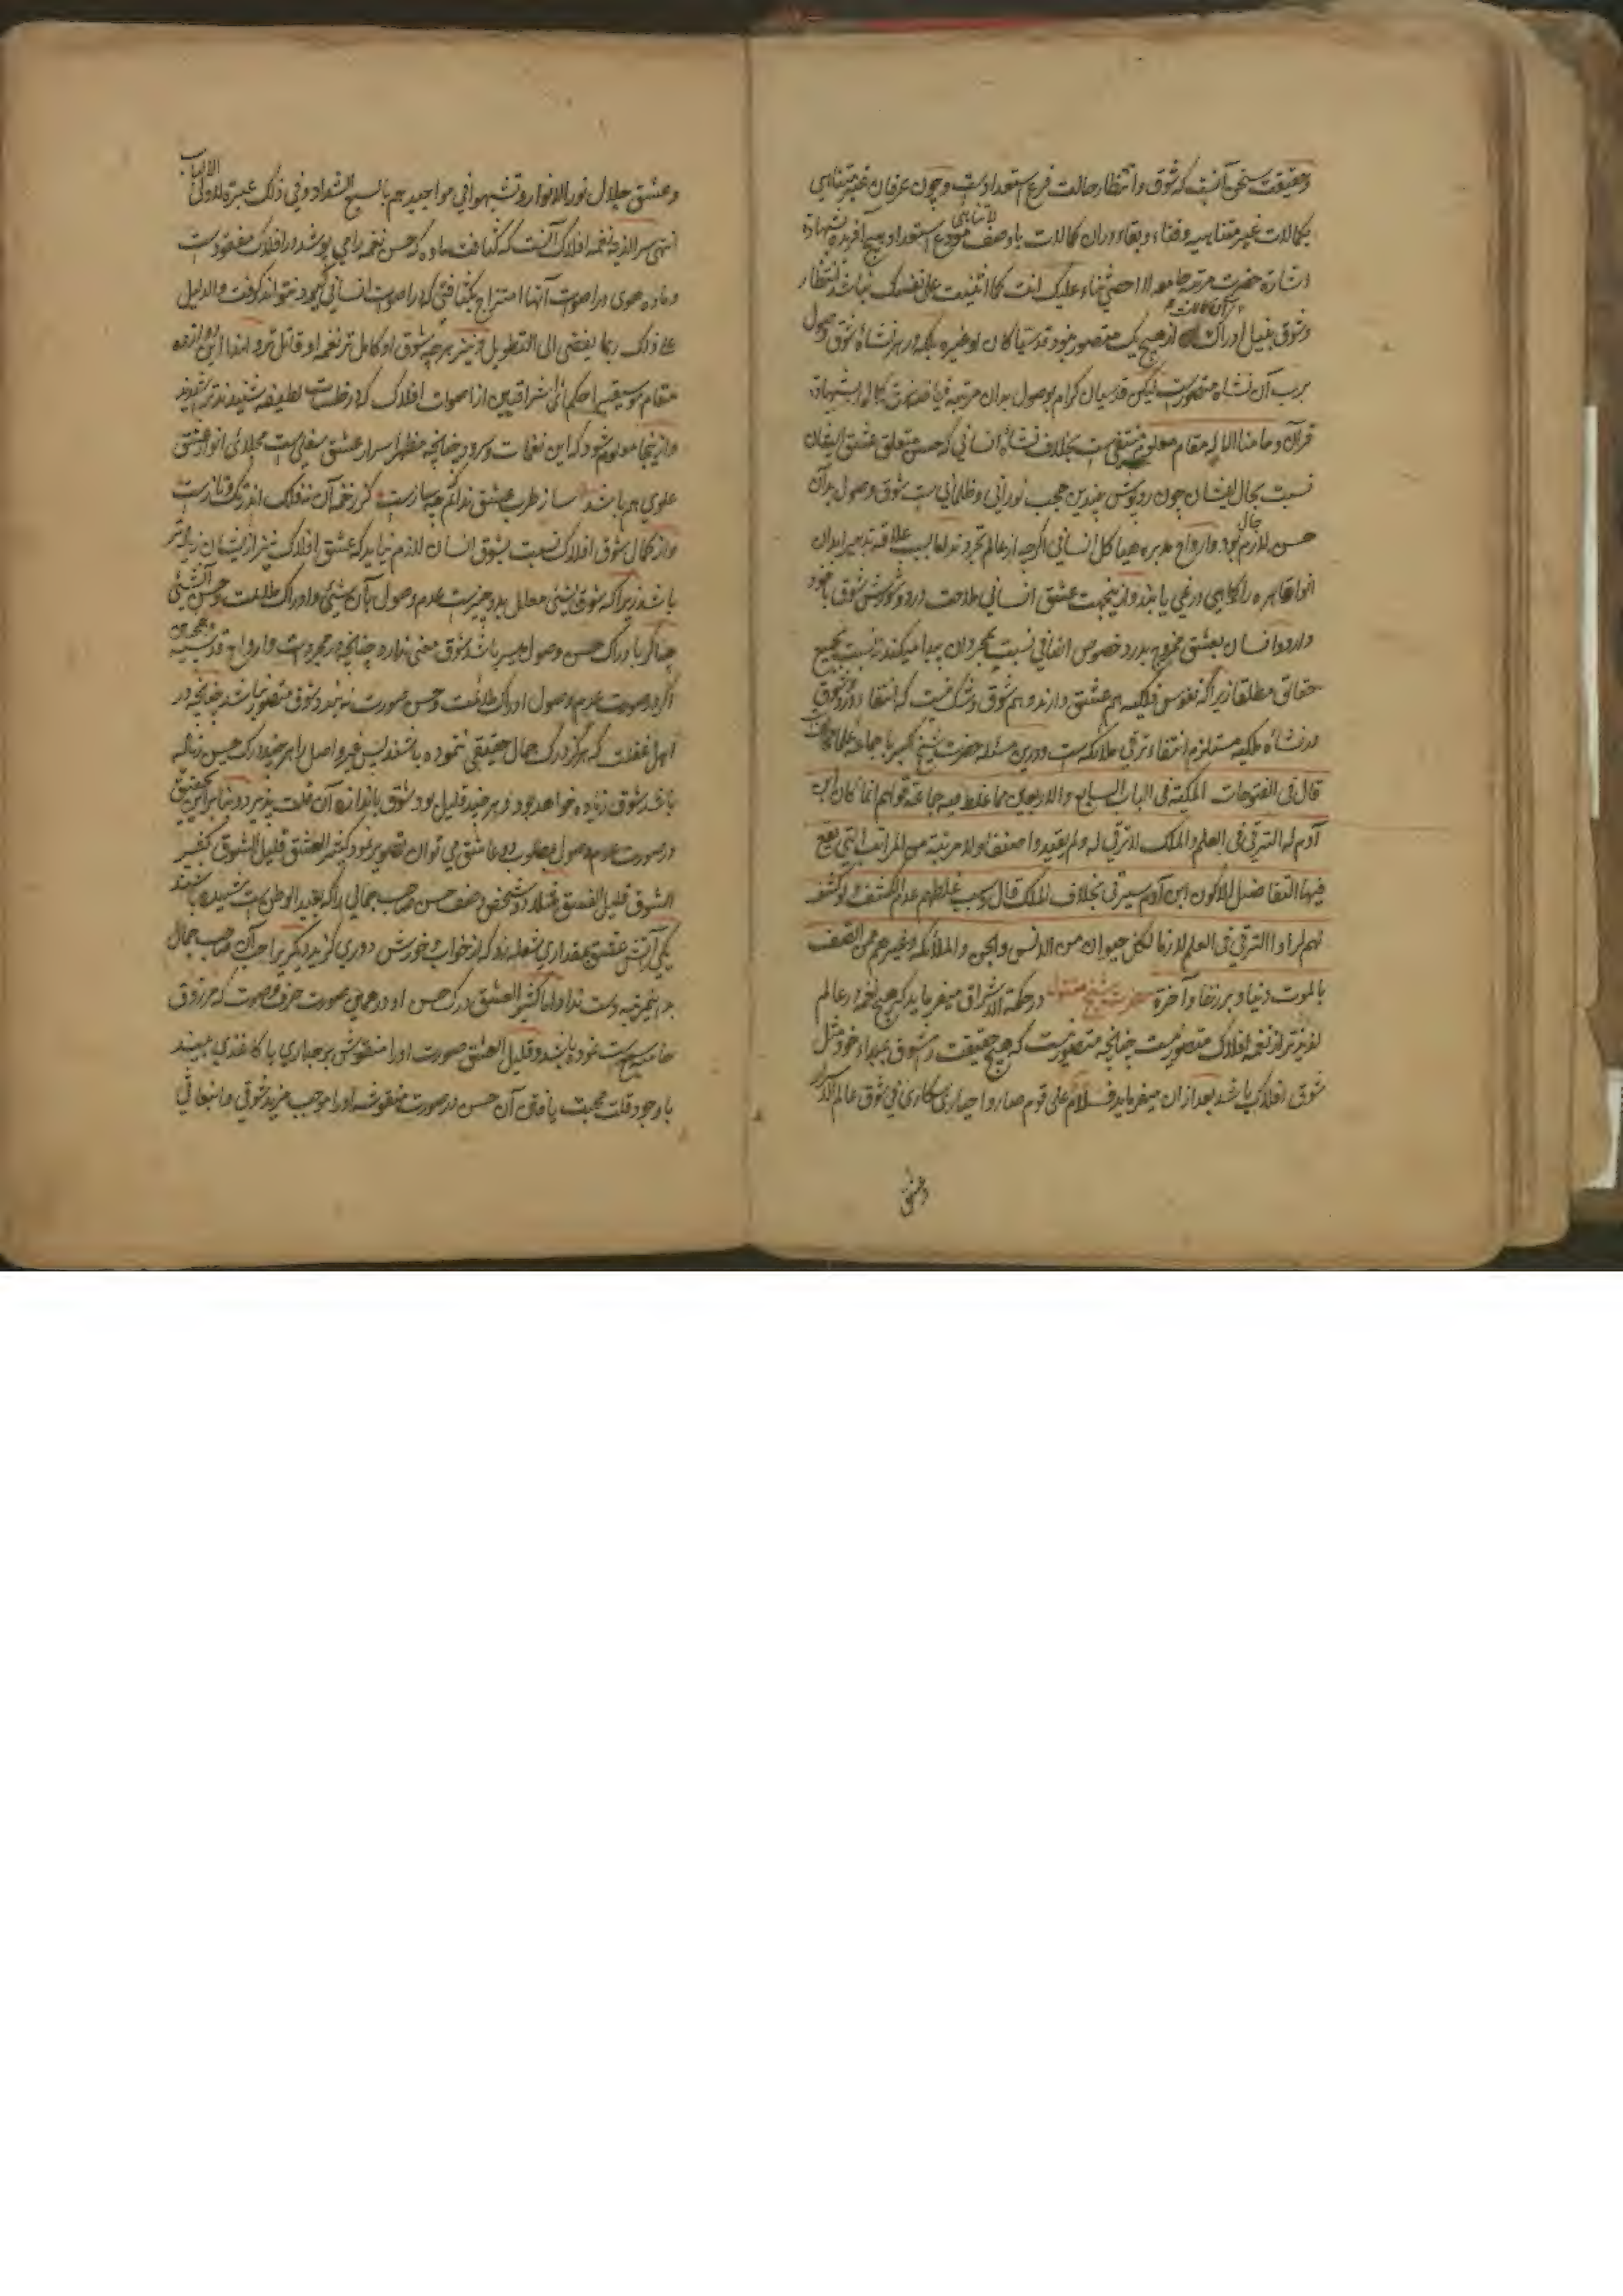 وحقیقت سخن آنست که شوق و انتظار حالت فرع استعداد است و چون عرفان غیر متناهی
بکمالات غیر متناهیه وفناء و بقاء دران کمالات باوصف استعداد هیچ آفریده بشهادة
اشارة حضرت مرتبه جامعه لا احصی ثناء علیک انت کما اثنیت علی نفسک نباشد انتظار
وشوق بنیل ادراک از هیچ یک متصور نبود قدسیا کان او غیره بلکه در هر نشاه شوق وصول
آن نشاه متصورست لیکن قدسیان کرام بوصول بدان مرتبه
قرآن وما منا الا له مقام معلوم منتفی است بخلاف نشاه انسانی که حسن متعلق عشق ایشان
نسبت بحال ایشان چون روپوش چندین حجب نورانی و ظلمانی است شوق وصول بدان
حسن لازم بود وارواح مدبره هیاکل انسانی اگرچه از عالم تجرد اند اما بسبب علاقه تدبیر ابدان
انوار قاهره را یابند وازینجهت عشق انسانی ملاحت دارد و شورش شوق باخود
دارد وانسان بعشق ممزوج بدرد خصوص اضافی نسبت بمجردان پیدا میکند نه نسبت بجمیع
حقائق مطلقا زیرا که نفوس فلکیه هم عشق دارند و هم شوق وشک نیست که انتفاء درد و شوق
در نشاه ملکیه مستلزم انتفاء ترقی ملائکه است ودرین مسئله حضرت شیخ کبیر با جماعه علما
قال فی الفتوحات المکیة فی الباب السابع والاربعین مما غلط فیه جماعة قولهم انما کان ابن
آدم له الترقی فی العلم والملک لا ترقی له ولم یقیدوا صنفا ولا مرتبة من المراتب التی یقع
فیها التفاضل للاکون ابن آدم یترقی بخلاف الملک قال وسبب غلطهم عدم الکشف ولو کشف
لهم لرأوا الترقی فی العلم لازما لکل حیوان من الانس والجن والملائکة وغیرهم ممن اتصف
بالموت دنیا وبرزخا وآخرة حضرت شیخ مقتول در حکمة الاشراق میفرماید که هیچ نغمه در عالم
لذیذتر از نغمه افلاک متصور نیست چنانچه متصور نیست که هیچ حقیقت در شوق بمبداء خود مثل
شوق افلاک باشد بعد ازان میفرماید فسلام علی قوم صاروا حیاری سکاری فی شوق عالم
وعشق
وعشق جلال نور الانوار وتشبهوا فی مواجیدهم بالسبع الشداد وفی ذلک عبرة لاولی الالباب
انتهی سر لذیذ نغمه افلاک آنست که کثافت ماده که حسن نغمه را می پوشد در افلاک مفقودست
وماده هوی در اصوات آنها امتزاج بکثافتی که در اصوات انسانی گیرد نتواند گرفت والدلیل
علی ذلک ربما یفضی الی التطویل ونیز هرچه شوق او کامل تر نغمه او قاتل تر وانما
مقام موسیقی را حکمائی اشراقیین از اصوات افلاک که در خلسات لطیفه شنیدند
وازینجا معلوم شود که این نغمات وسرود چنانچه مظهر اسرار عشق سفلی است مجلائی انوار عشق
علوی هم باشد ساز طرب عشق ندانم چه سازست کز زخمه آن نه فلک اندر تک وتازست
واز کمال شوق افلاک نسبت بشوق انسان لازم نیاید که عشق افلاک نیز از ایشان زیاده تر
باشد زیرا که شوق شیئی معلل بدو چیزست عدم وصول بآن شیئی وادراک ملائمت وحسن آن شیئی
چه اگر با ادراک حسن وصول میسر باشد شوق معنی ندارد چنانچه در مجردات وارواح قدسیه
اگر در صورت عدم وصول ادراک ملائمت وحسن صورت نه بندد شوق متصور نباشد چنانچه در
اهل غفلت که هرگز درک جمال حقیقی ننموده باشند پس غیر واصل را هر چند درک حسن زیاده
باشد شوق زیاده خواهد بود و هر چند قلیل بود شوق باندازه آن قلت پذیرد وبنابراین تحقیق
در صورت عدم وصول بمطلوب دو عاشق می توان تصویر نمود کثیر العشق قلیل الشوق کثیر
الشوق قلیل العشق مثلا دو شخص وصف حسن صاحب جمالی را که بعید الوطن است شنیده باشند
یکی آتش عشق بمقداری شعله زد که از خواب وخورش دوری گزید دیگر برا حب آن صاحب جمال
باین مرتبه دست نداد اما کثیر العشق درک حسن او در همان صورت حرف وصوت که مرزوق
سمع است نموده باشد وقلیل العشق صورت او را منقوش بر جداری یا کاغذی ببیند
باوجود قلت محبت یافتن آن حسن در صورت منقوشه او را موجب مزید شوقی وانبعاثی